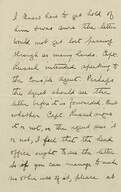 I must have to get hold of
him. I was sure the letter
would not get lost passing
through so many hands. Capt.
Russell intended reporting to
the Consols agent. Perhaps
the agent should see the
letter before it is forwarded. But
whether Capt. Russell signs
it or not, or the agent sees it
or not, I feel that the head
office ought to see the letter
So if you can manage to make
no other use of it, please at